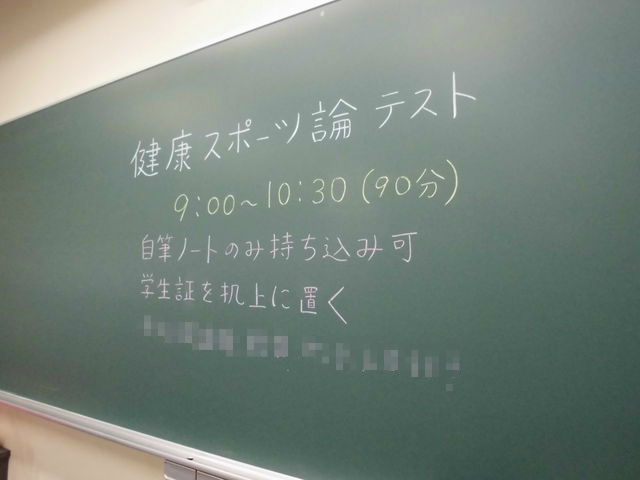 健康スポーツ論 テスト
9:00~10:30 (90分)
自筆ノートのみ持ち込み可
学生証を机上に置く